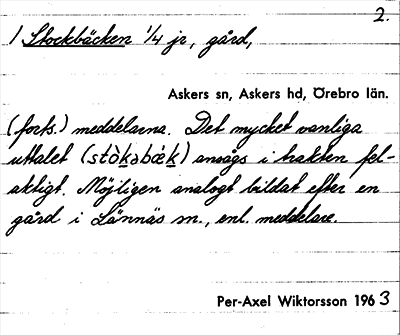 2.
1 Stockbäcken 1/4 jr, gård,
Askers sn, Askers hd, Örebro län.
(forts.) meddelarna. Det mycket vanliga
uttalet (stòkəbæ̀k) ansågs i trakten fel-
aktigt. Möjligen analogt bildat efter en
gård i Lännäs sn., enl. meddelare.
Per-Axel Wiktorsson 1963